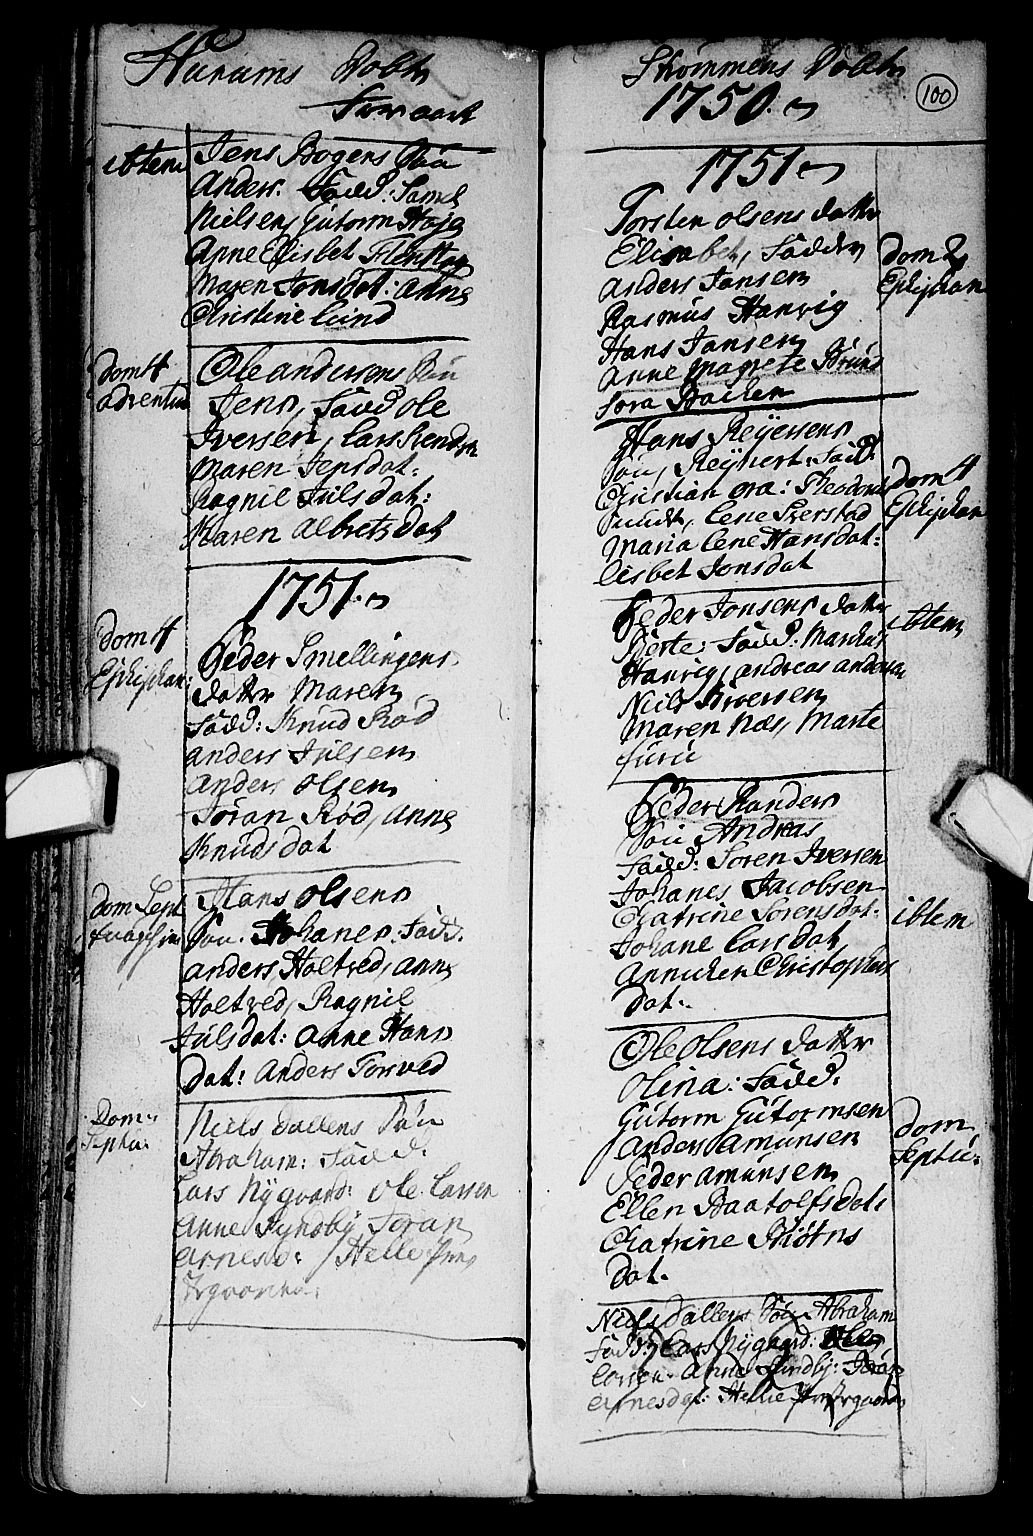 Hurums Døbte
ibtem
Jens Bogens Søn
Anders: Fadd: Samel
Nielsen, Gutorm Høje
Anne Elisbet
Maren Jonsdat: Anne
Christine Lund
dom 4
adventus
Ole andersens Søn
Jens, Fadd Ole
Iversen, Lars
Maren Jensdat:
Ragnil Julsdat:
Maren Albretsdat
1751
dom 4
Ephiphan:
Peder Smellingens
datter Maren
Fadd: Knud Rød
anders Julsen
Anders Olsen
Søran Rød, Anne
Knudsdat
dom Sept
Hans Olsens
Søn. Johanes. Fadd.
anders Holtved, Anne
Holtved, Ragnil
Julsdat: Anne Hans
dat: Anders Torved
Dom:
Septu:
Niels Dallens Søn
Abraham: Fadd.
Lars Nygaard: Ole Larsen
Anne Syndby Søran
Arnesd: Helle

Strømmens Døbte
1750
100
1751
Torsten Olsens datter
Elisabet, Fadder
Anders Jansen
Rasmus Hanvig
Hans Jansen
Anne Magrete Bruns
Sora Backen
dom 2
Ephiphan
Hans Reijersens
Søn, Reijnert: Fadd.
Christian ora: Theodorus
Lene Sverstad
Maria Lene Hansdat:
Lisbet Jonsdat
dom 4
Ephiphan
Peder Jonsens datter
Berte: Fadd: Marckus
Hanvig, Andreas Andersen
Niels Iversen
Maren Næs, Marte
furu
ibtem
Peder Randers
Søn Andreas
Fadd: Soren Iversen
Johanes Jacobsen
Chatrine Sorensdat:
Johane Larsdat,
Annichen Christophers
dat.
ibtem
Ole Olsens datter
Olina: Fadd:
Gutorm Gutormsen
Anders Amunsen
Peder Amunsen
Ellen Baatolfsdat:
Chatrine Biørns
dat.
dom
Septu:
Niels Dallens Søn Abraham
Fadd: Lars Nygaard: Ole
Larsen. Anne Sundby: Søran
Arnesdat: Helle